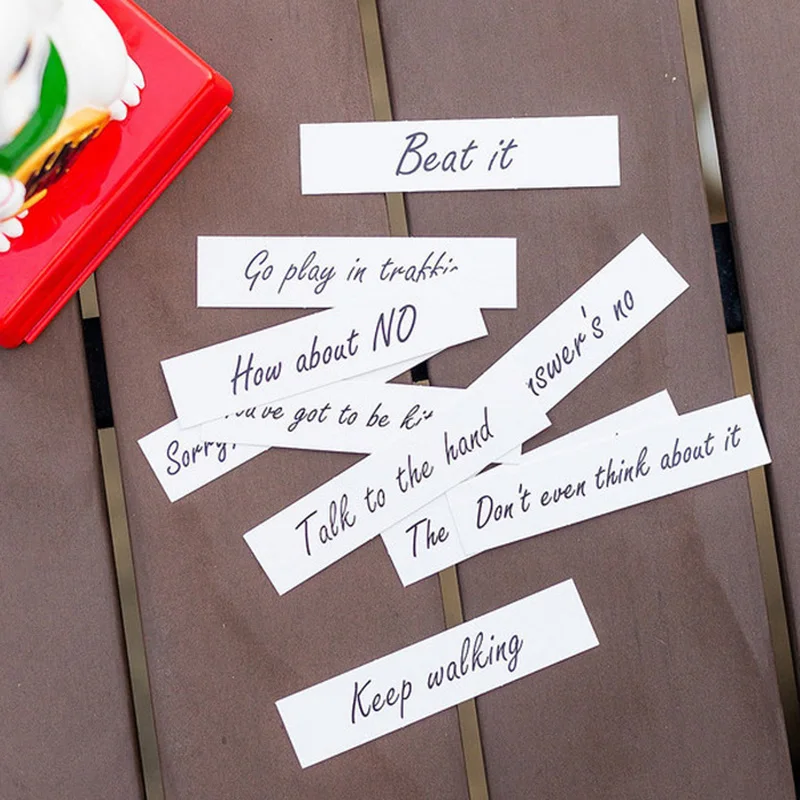 Beat it
Go play in traffic
How about NO
swer's no
ve got to be ki
Sorry,
Talk to the hand
Don't even think about it
The
Keep walking